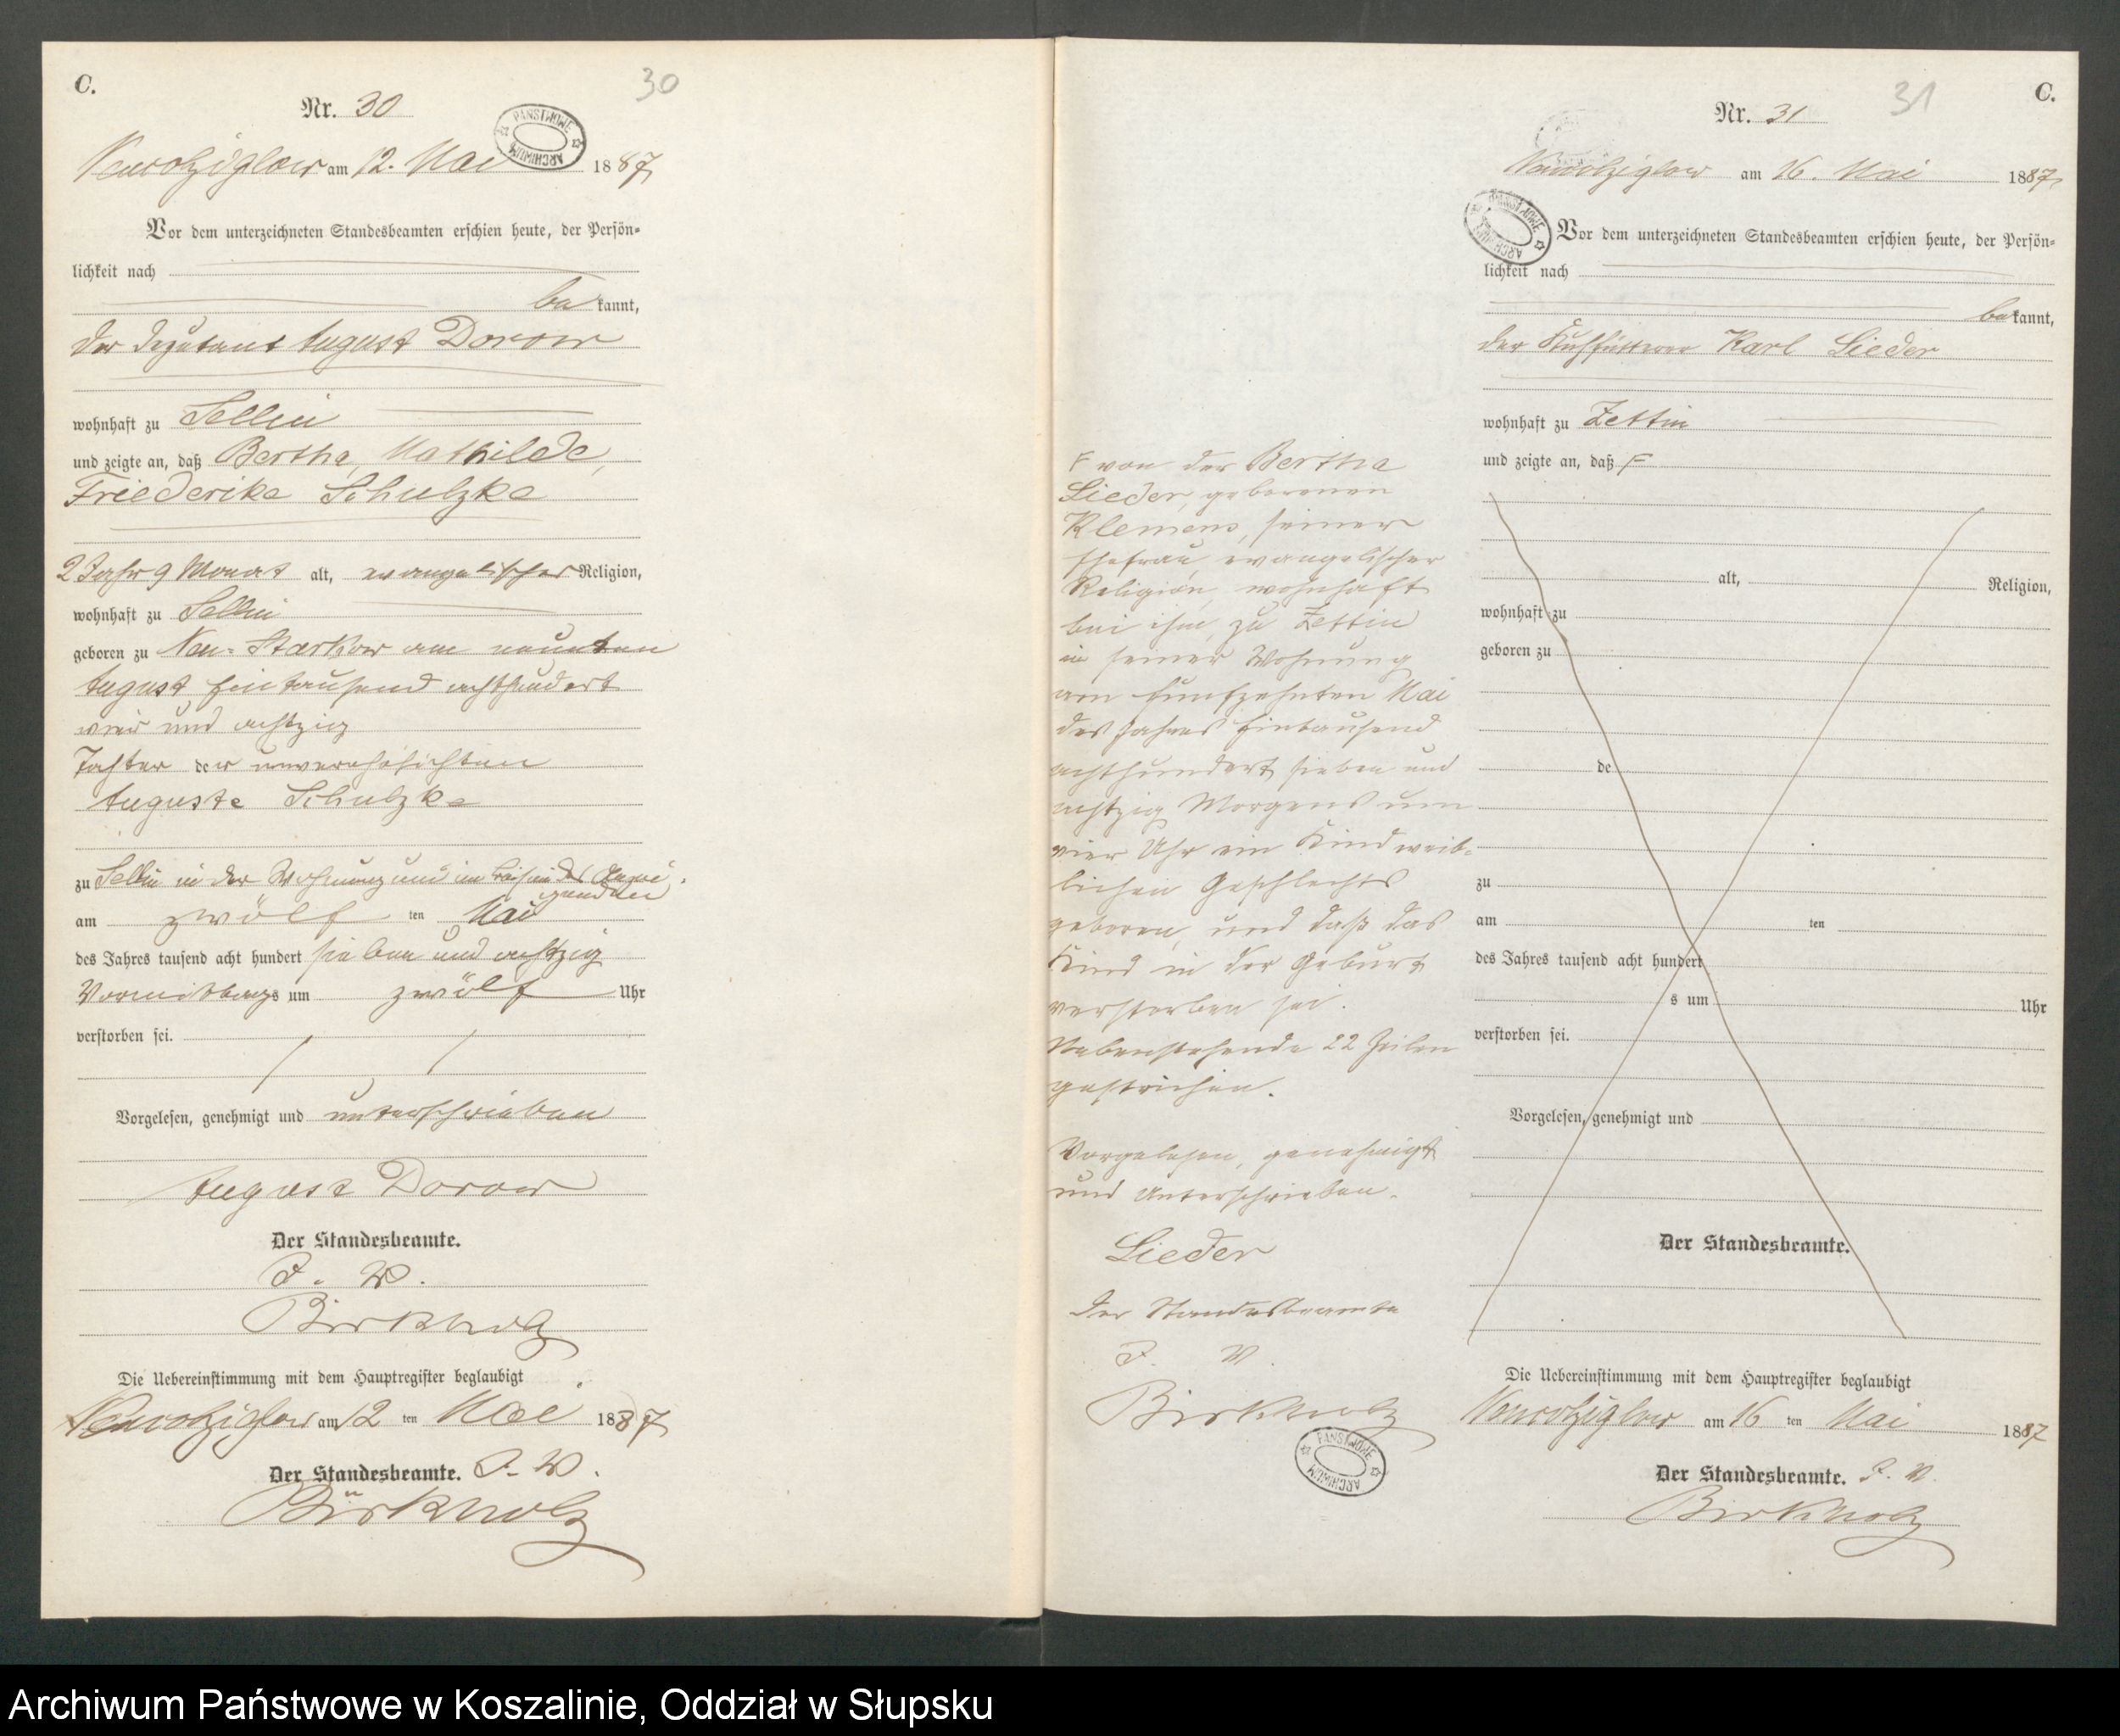 C.
30
Nr. 30
PAŃSTWOWE ARCHIWUM
Neuwolziglow am 12. Mai 1887
Vor dem unterzeichneten Standesbeamten erschien heute, der Persön-
lichkeit nach
bekannt,
der Deputant August Dorow
wohnhaft zu Sellin
und zeigte an, daß Bertha, Mathilde,
Friederike Schulzke
2 Jahr 9 Monat alt, evangelischer Religion,
wohnhaft zu Sellin
geboren zu Neu-Starkow am neunten
August Eintausend achthundert
vier und achtzig
Tochter der unverehelichten
Auguste Schulzke
zu Sellin in der Wohnung und im Beisein des Anzei-
genden
am zwölf ten Mai
des Jahres tausend acht hundert sieben und achtzig
Vormittags um zwölf Uhr
verstorben sei.
Vorgelesen, genehmigt und unterschrieben
August Dorow
Der Standesbeamte.
J. V.
Birkholz
Die Uebereinstimmung mit dem Hauptregister beglaubigt
Neuwolziglow am 12 ten Mai 1887
Der Standesbeamte. J. V.
Birkholz
31
C.
Nr. 31
Neuwolziglow am 16. Mai 1887
PAŃSTWOWE ARCHIWUM
Vor dem unterzeichneten Standesbeamten erschien heute, der Persön-
lichkeit nach
bekannt,
der Kuhfütterer Karl Lieder
wohnhaft zu Zettin
und zeigte an, daß F
F von der Bertha
Lieder, geborenen
Klemens, seiner
Ehefrau, evangelischer
Religion, wohnhaft
bei ihm, zu Zettin
in seiner Wohnung
am fünfzehnten Mai
des Jahres Eintausend
achthundert sieben und
achtzig Morgens um
vier Uhr ein Kind weib-
lichen Geschlechts
geboren, und daß das
Kind in der Geburt
verstorben sei.
Nebenstehende 22 Zeilen
gestrichen.
Vorgelesen, genehmigt
und unterschrieben.
Lieder
Der Standesbeamte
J. V.
Birkholz
PAŃSTWOWE ARCHIWUM
alt, Religion,
wohnhaft zu
geboren zu
de
zu
am ten
des Jahres tausend acht hundert
s um Uhr
verstorben sei.
Vorgelesen, genehmigt und
Der Standesbeamte.
Die Uebereinstimmung mit dem Hauptregister beglaubigt
Neuwolziglow am 16 ten Mai 1887
Der Standesbeamte. J. V.
Birkholz
Archiwum Państwowe w Koszalinie, Oddział w Słupsku